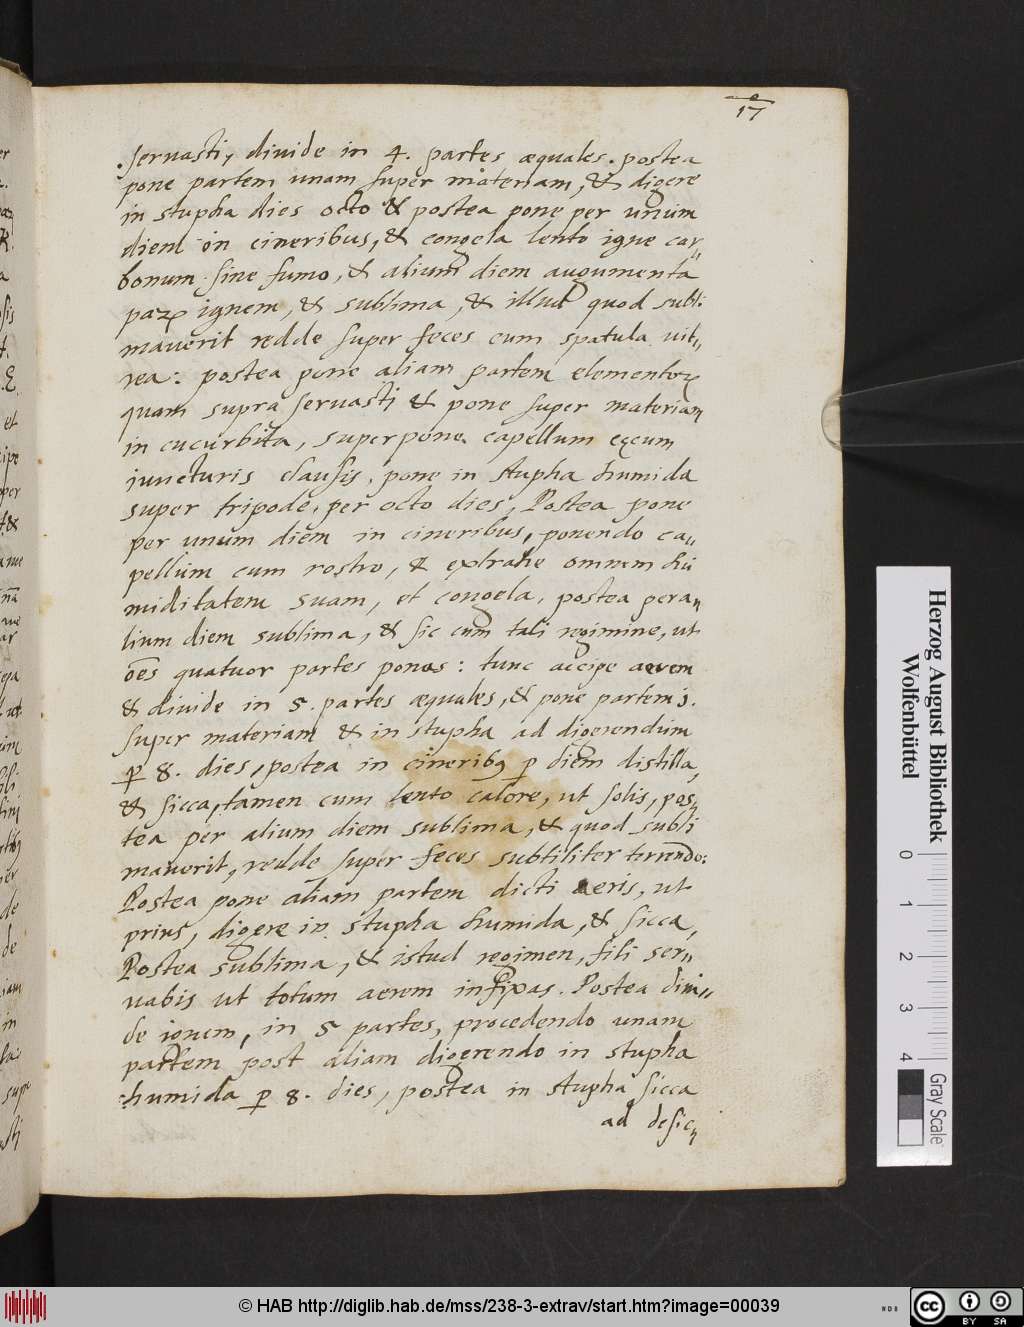 17
seruasti, diuide in 4. partes æquales. postea
pone partem unam super materiam, & digere
in stupha dies octo & postea pone per unum
diem in cineribus, & congela lento igne car„
bonum sine fumo, & alium diem augumenta
ignem, & sublima, & illud quod subli
mauerit redde super feces cum spatula uit„
rea: postea pone aliam partem elementoꝝ
quam supra seruasti & pone super materiam
in cucurbita, superpone capellum cęcum
iuncturis clausis, pone in stupha humida
super tripode, per octo dies, Postea pone
per unum diem in cineribus, ponendo ca„
pellum cum rostro, & extrahe omnem hu
miditatem suam, et congela, postea per a„
lium diem sublima, & sic cum tali regimine, ut
oẽs quatuor partes ponas: tunc accipe aerem
& diuide in 5. partes æquales, & pone partem j.
super materiam & in stupha ad digerendum
ꝑ 8. dies, postea in cineribꝯ ꝑ diem distilla,
& sicca, tamen cum lento calore, ut solis, pos„
tea per alium diem sublima, & quod subli
mauerit, redde super feces subtiliter terrendo:
Postea pone aliam partem dicti aeris, ut
prius, digere in stupha humida, & sicca,
Postea sublima, & istud regimen, fili ser„
uabis ut totum aerem infixas. Postea diui„
de ignem, in 5 partes, procedendo unam
partem post aliam digerendo in stupha
humida ꝑ 8. dies, postea in stupha sicca
ad desic„
er
et
de
de
in
Herzog August Bibliothek
Wolfenbüttel
0 1 2 3 4
Gray Scale
© HAB http://diglib.hab.de/mss/238-3-extrav/start.htm?image=00039
CC BY SA